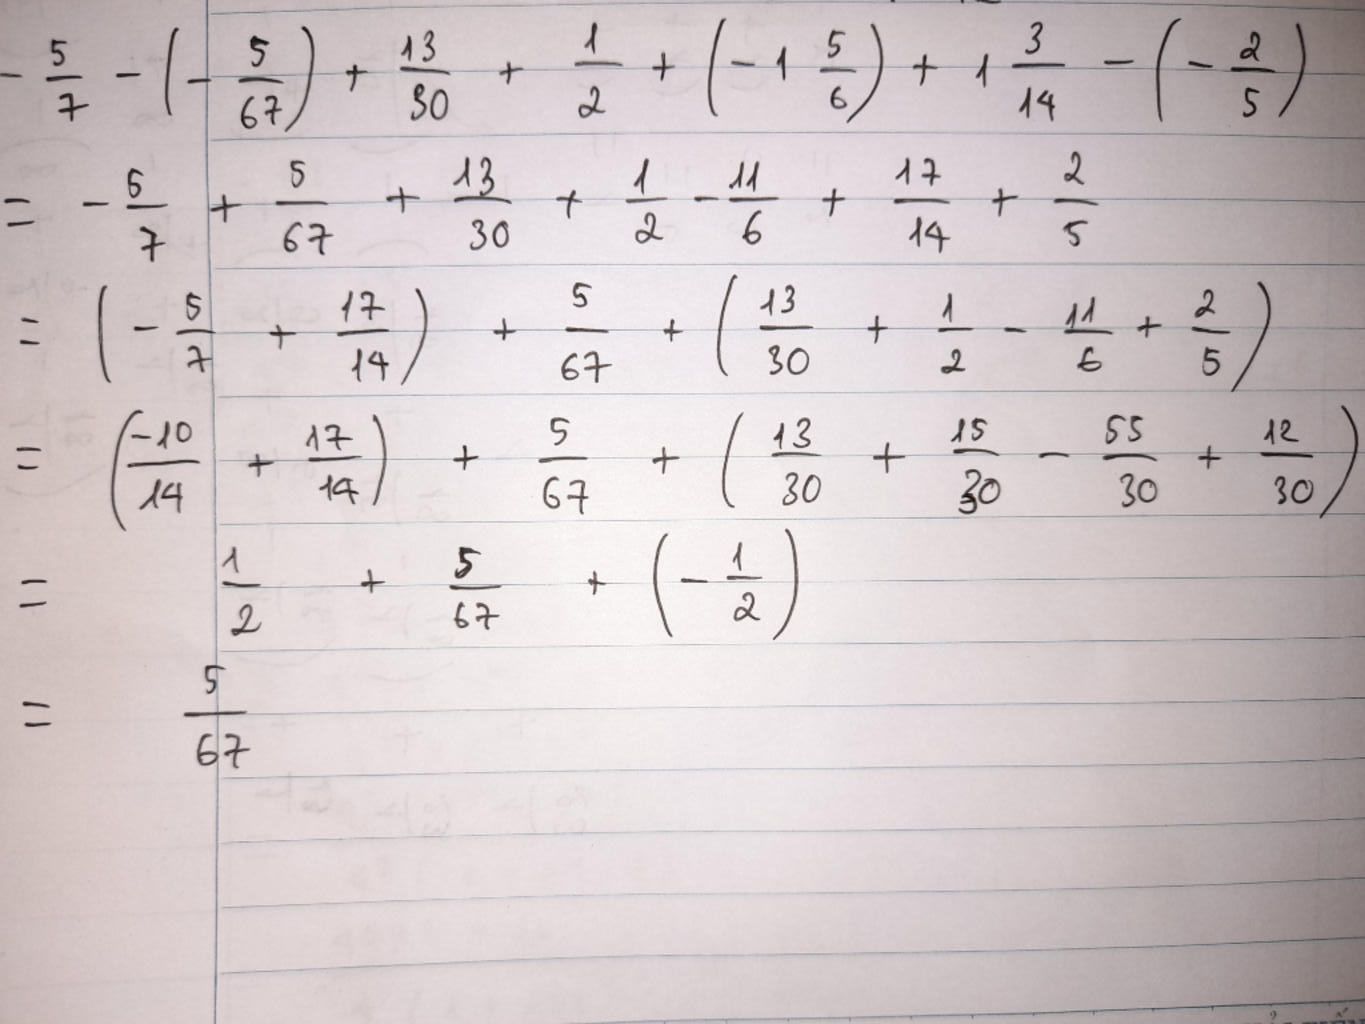 - 5/7 - (- 5/67) + 13/30 + 1/2 + (-1 5/6) + 1 3/14 - (- 2/5)
= - 5/7 + 5/67 + 13/30 + 1/2 - 11/6 + 17/14 + 2/5
= (- 5/7 + 17/14) + 5/67 + (13/30 + 1/2 - 11/6 + 2/5)
= (-10/14 + 17/14) + 5/67 + (13/30 + 15/30 - 55/30 + 12/30)
= 1/2 + 5/67 + (- 1/2)
= 5/67